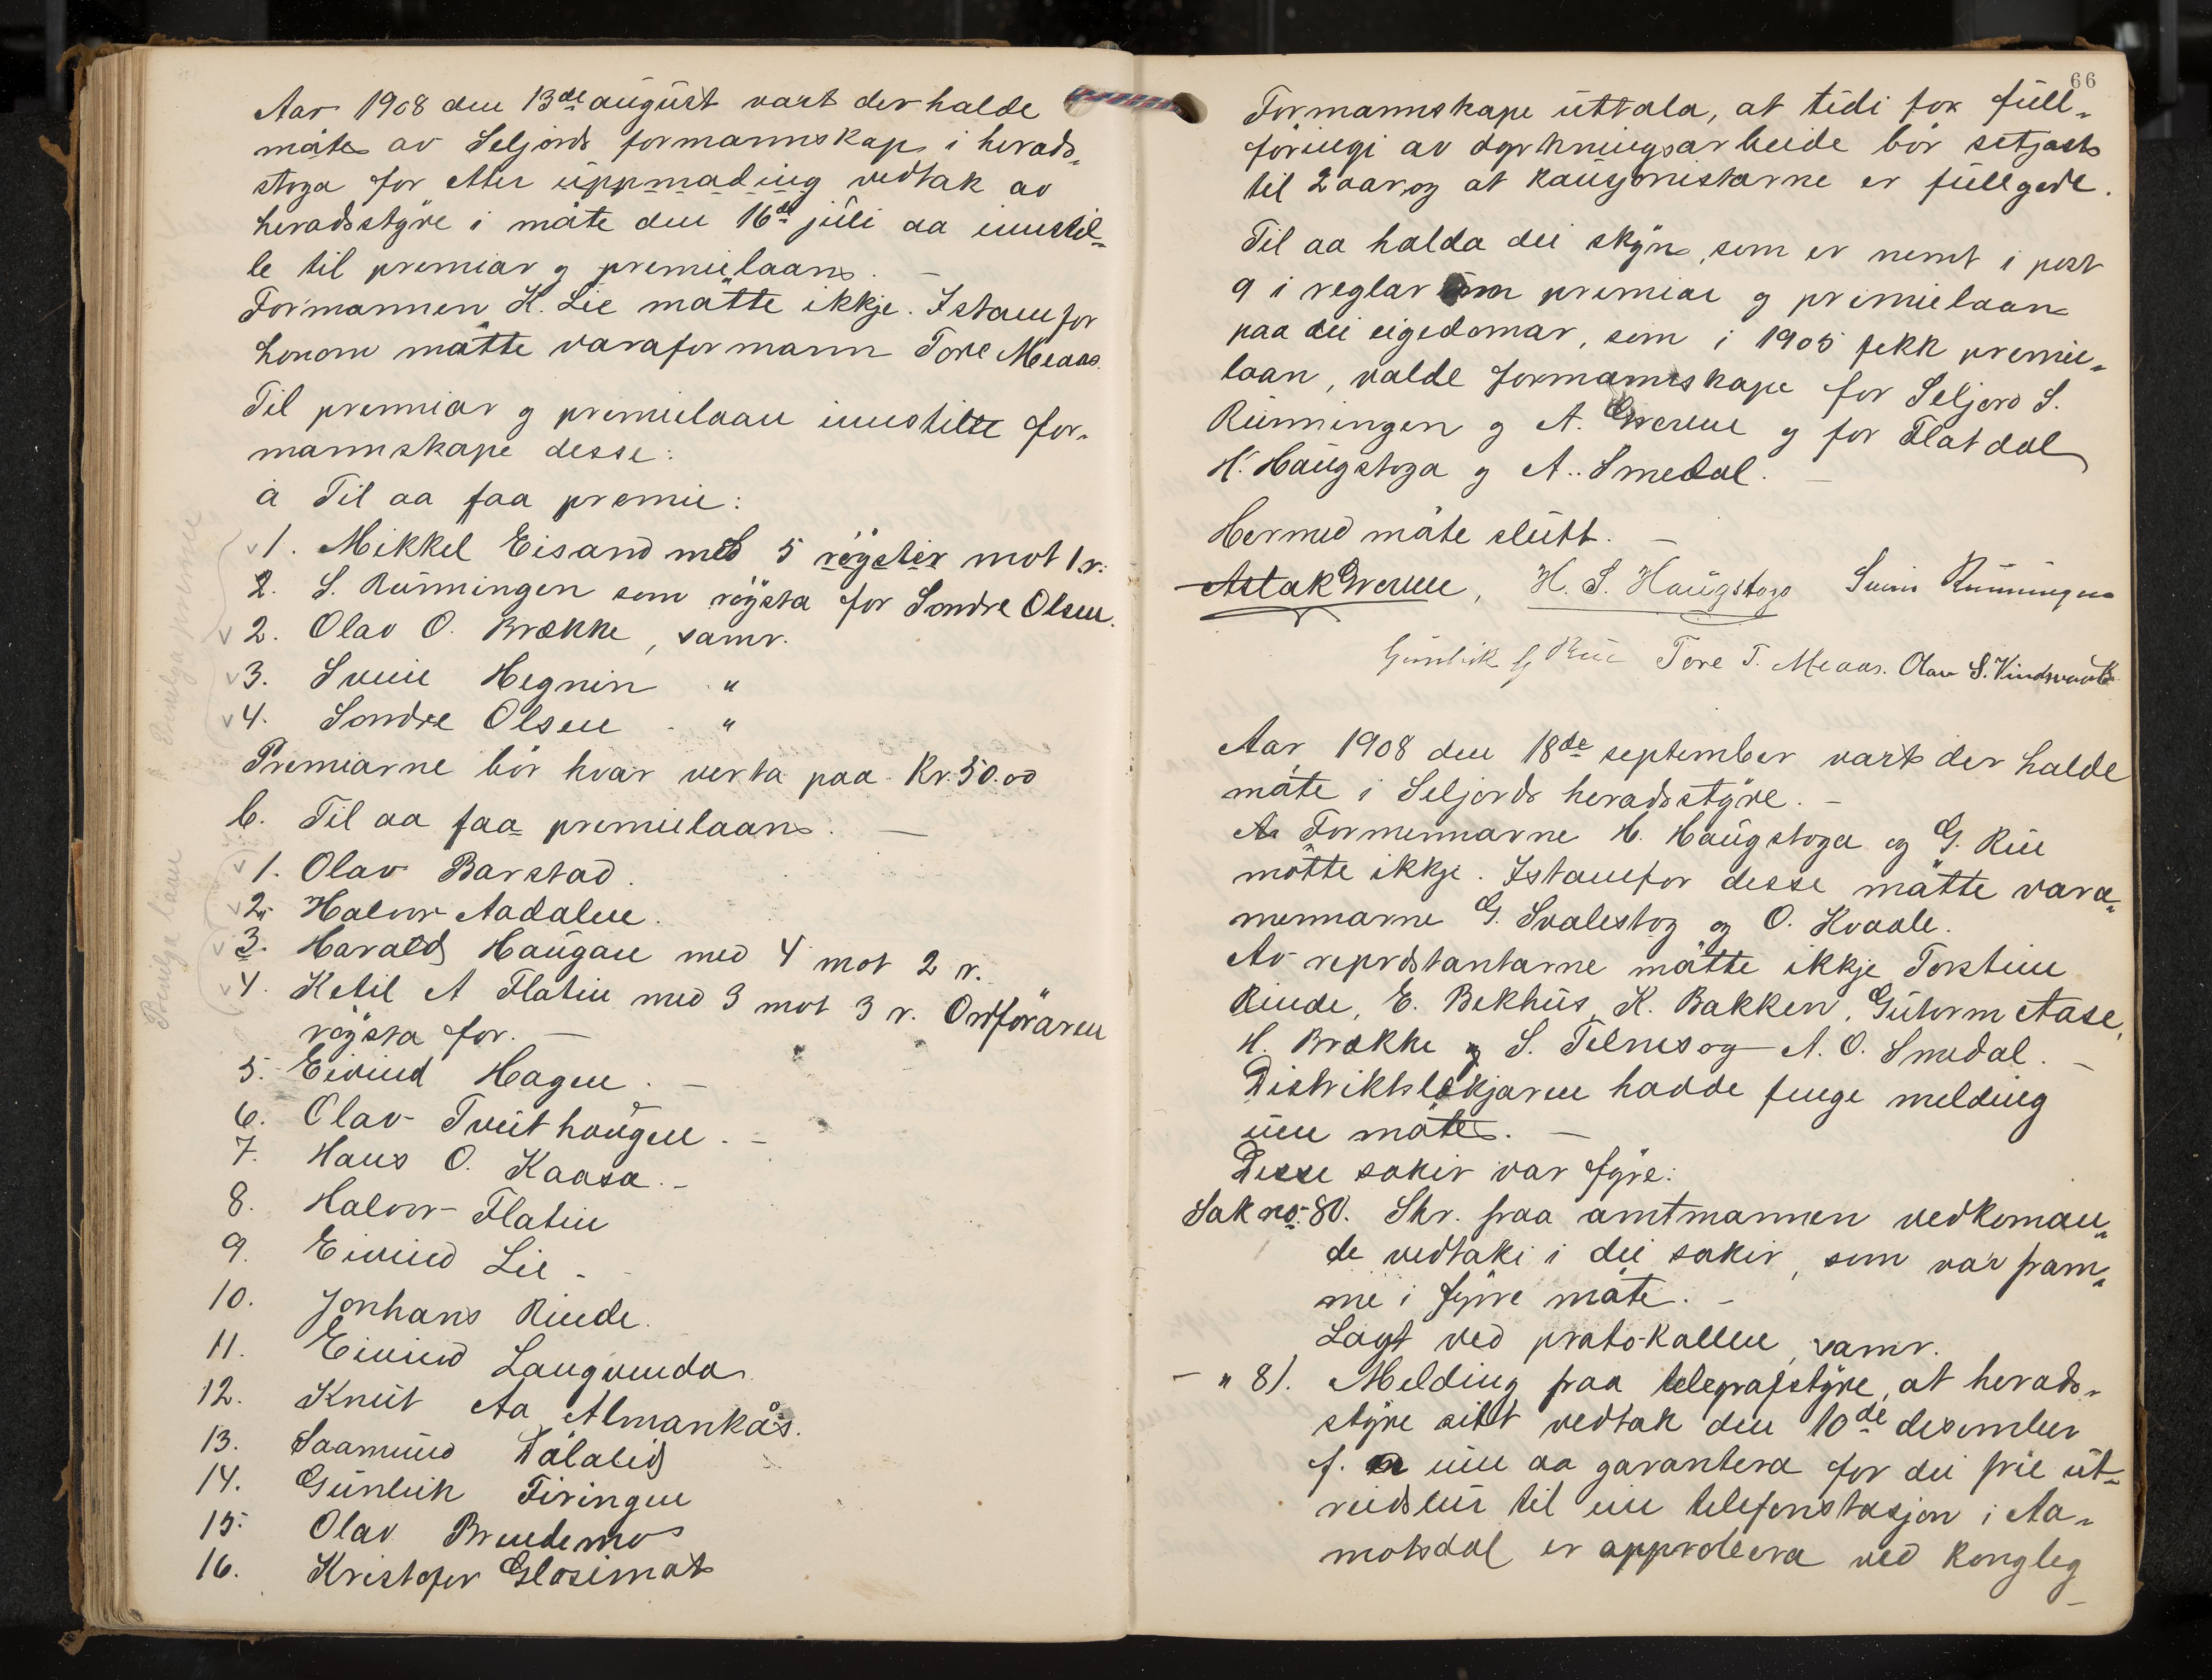 Aar 1908 den 13de august vart der halde
møte av Seljords formannskap i herads-
stoga for etter uppmading vedtak av
heradsstyre i møte den 16de juli aa innstil-
le til premiar og premielaan. —
Formannen K. Lie møtte ikkje. Istaden for
honom møtte varaformann Tore Meaas.
Til premiar og premielaan innstilte for-
mannskape desse:
a Til aa faa premie:
1. Mikkel Eisand med 5 røyster mot 1 r.
2. S. Rünningen som røysta for Sondre Olsen.
2. Olav O. Brække, samr.
3. Svein Hegnin "
4. Sondre Olsen "
Premiarne bör hvar verta paa Kr. 50.00
b. Til aa faa premielaan. —
1. Olav Barstad.
2. Halvor Aadalen.
3. Harald Haugan med 4 mot 2 r.
4. Ketil A Flatin med 3 mot 3 r. Ordføraren
røysta for. —
5. Eivind Hagen. —
6. Olav Tveithaugen. —
7. Hans O. Kaasa. —
8. Halvor Flatin
9. Eivind Lie —
10. Jonhans Rinde.
11. Eivind Langvendo
12. Knut Aa Almankås.
13. Saamund Dalalid
14. Gunleik Tiringen
15. Olav Brudemo
16. Kristofer Glosimot
Penilga premie
Penilga laan
66
Formannskape uttala, at tidi for full-
føringi av dyrkningsarbeide bör setjast
til 2 aar og at kausjonistarne er fullgode.
Til aa halda dei skjøn, som er nemt i post
9 i reglar um premiar og premielaan
paa dei eigedomar, som i 1905 fekk premie-
laan, valde formannskape for Seljord S.
Rünningen og A. Grerue og for Flatdal
H. Haugstoga og A. Smedal. —
Hermed møte slutt. —
Aslak Grerue, H. S. Haugstoga Svein Rünningen
Gunleik G Rui Tore T. Meaas. Olav S. Vindsvaak
Aar 1908 den 18de september vart der halde
møte i Seljords heradsstyre. —
Av Formennarne H. Haugstoga og G. Rui
møtte ikkje. Istadenfor desse møtte vara-
mennarne G. Svalestog og O. Kvaale.
Av reprdstantarne møtte ikkje Torstein
Rinde, E. Bekhus, K. Bakken, Gutorm Aase,
H. Brække og S. Telnes og A. O. Smedal. —
Distriktslækjaren hadde fenge melding
um møte. —
Desse sakir var fyre:
Sak no. 80. Skr. fraa amtmannen vedkoman-
de vedtaki i dei sakir, som var fram-
me i fyrre møte. —
Lagt ved protokallen, samr.
— " 81. Melding fraa telegrafstyre, at herads-
styre sitt vedtak den 10de desember
f. a um aa garantera for dei frie ut-
reidslur til ein telefonstasjon i Aa-
motsdal er approbera ved kongleg